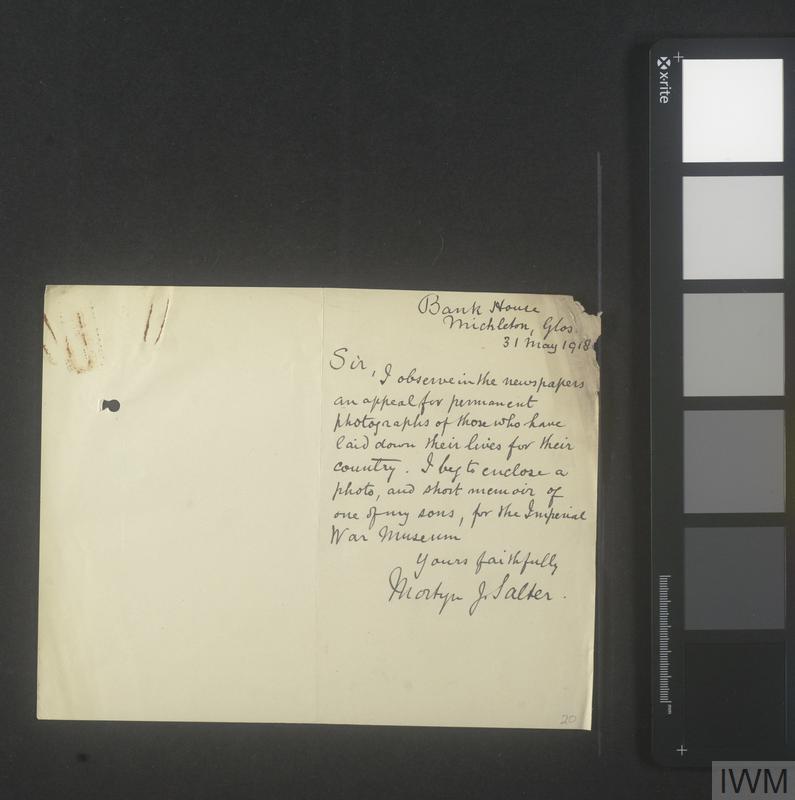 Bank House
Mickleton, Glos.
31 May 1918
Sir,
I observe in the newspapers
an appeal for permanent
photographs of those who have
laid down their lives for their
country. I beg to enclose a
photo, and short memoir of
one of my sons, for the Imperial
War Museum
Yours faithfully
Mortyn J. Salter.
20
x-rite
mm
IWM